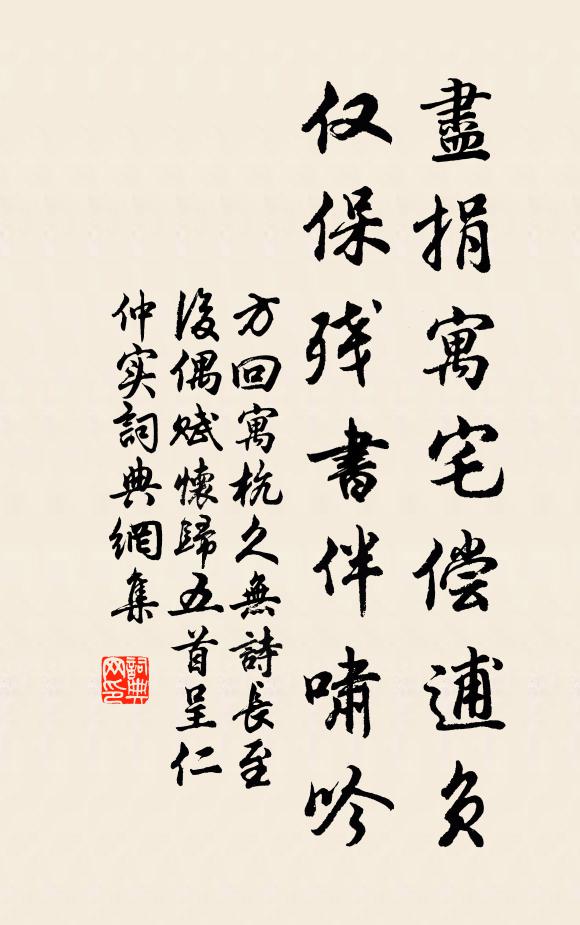 盡捐寓宅偿逋负
仅保残書伴嘯吟
方回寓杭久無詩長至
後偶赋懷歸五首呈仁
仲实詞典網集
詞典
网印